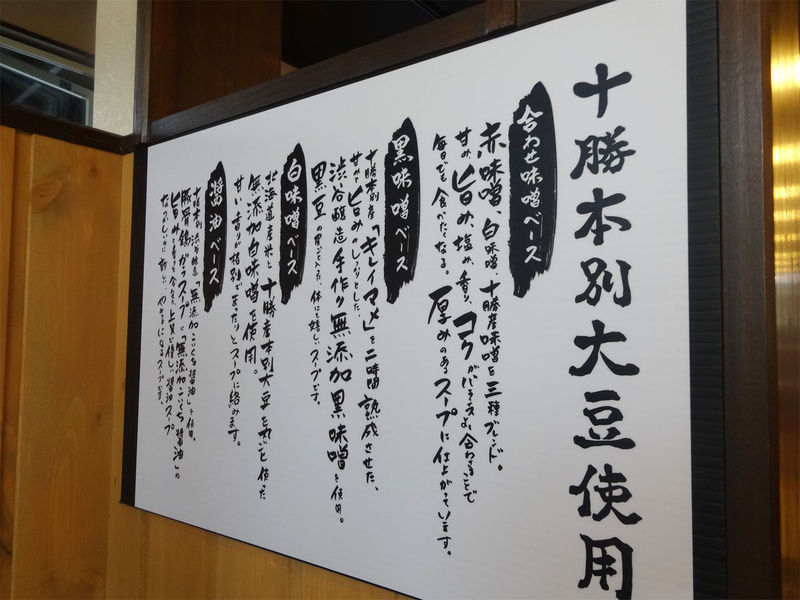 十勝本別大豆使用
合わせ味噌ベース
赤味噌、白味噌、十勝産味噌を三種ブレンド。
甘み、旨み、塩み、香り、コクがバランスよく合わさることで
毎日でも食べたくなる。厚みのあるスープに仕上がっています。
黒味噌ベース
十勝本別産「キレイマメ」を二時間熟成させた、
甘みと旨みのしっかりとした、
渋谷醸造手作り無添加黒味噌を使用。
黒豆の電子を入れた、体にも嬉しいスープです。
白味噌ベース
北海道産米と十勝産本別大豆を丸ごと使った
無添加白味噌を使用
甘い香りが格別でまったりとスープに絡みます。
醤油ベース
十勝本別渋谷醸造「無添加こいくち醤油」を使用。
豚骨鶏ガラスープに「無添加こいくち醤油」の
旨みと香りを合わせた上質な優しい醤油スープ
なつかしいのに新しい、やみつきになるスープです。